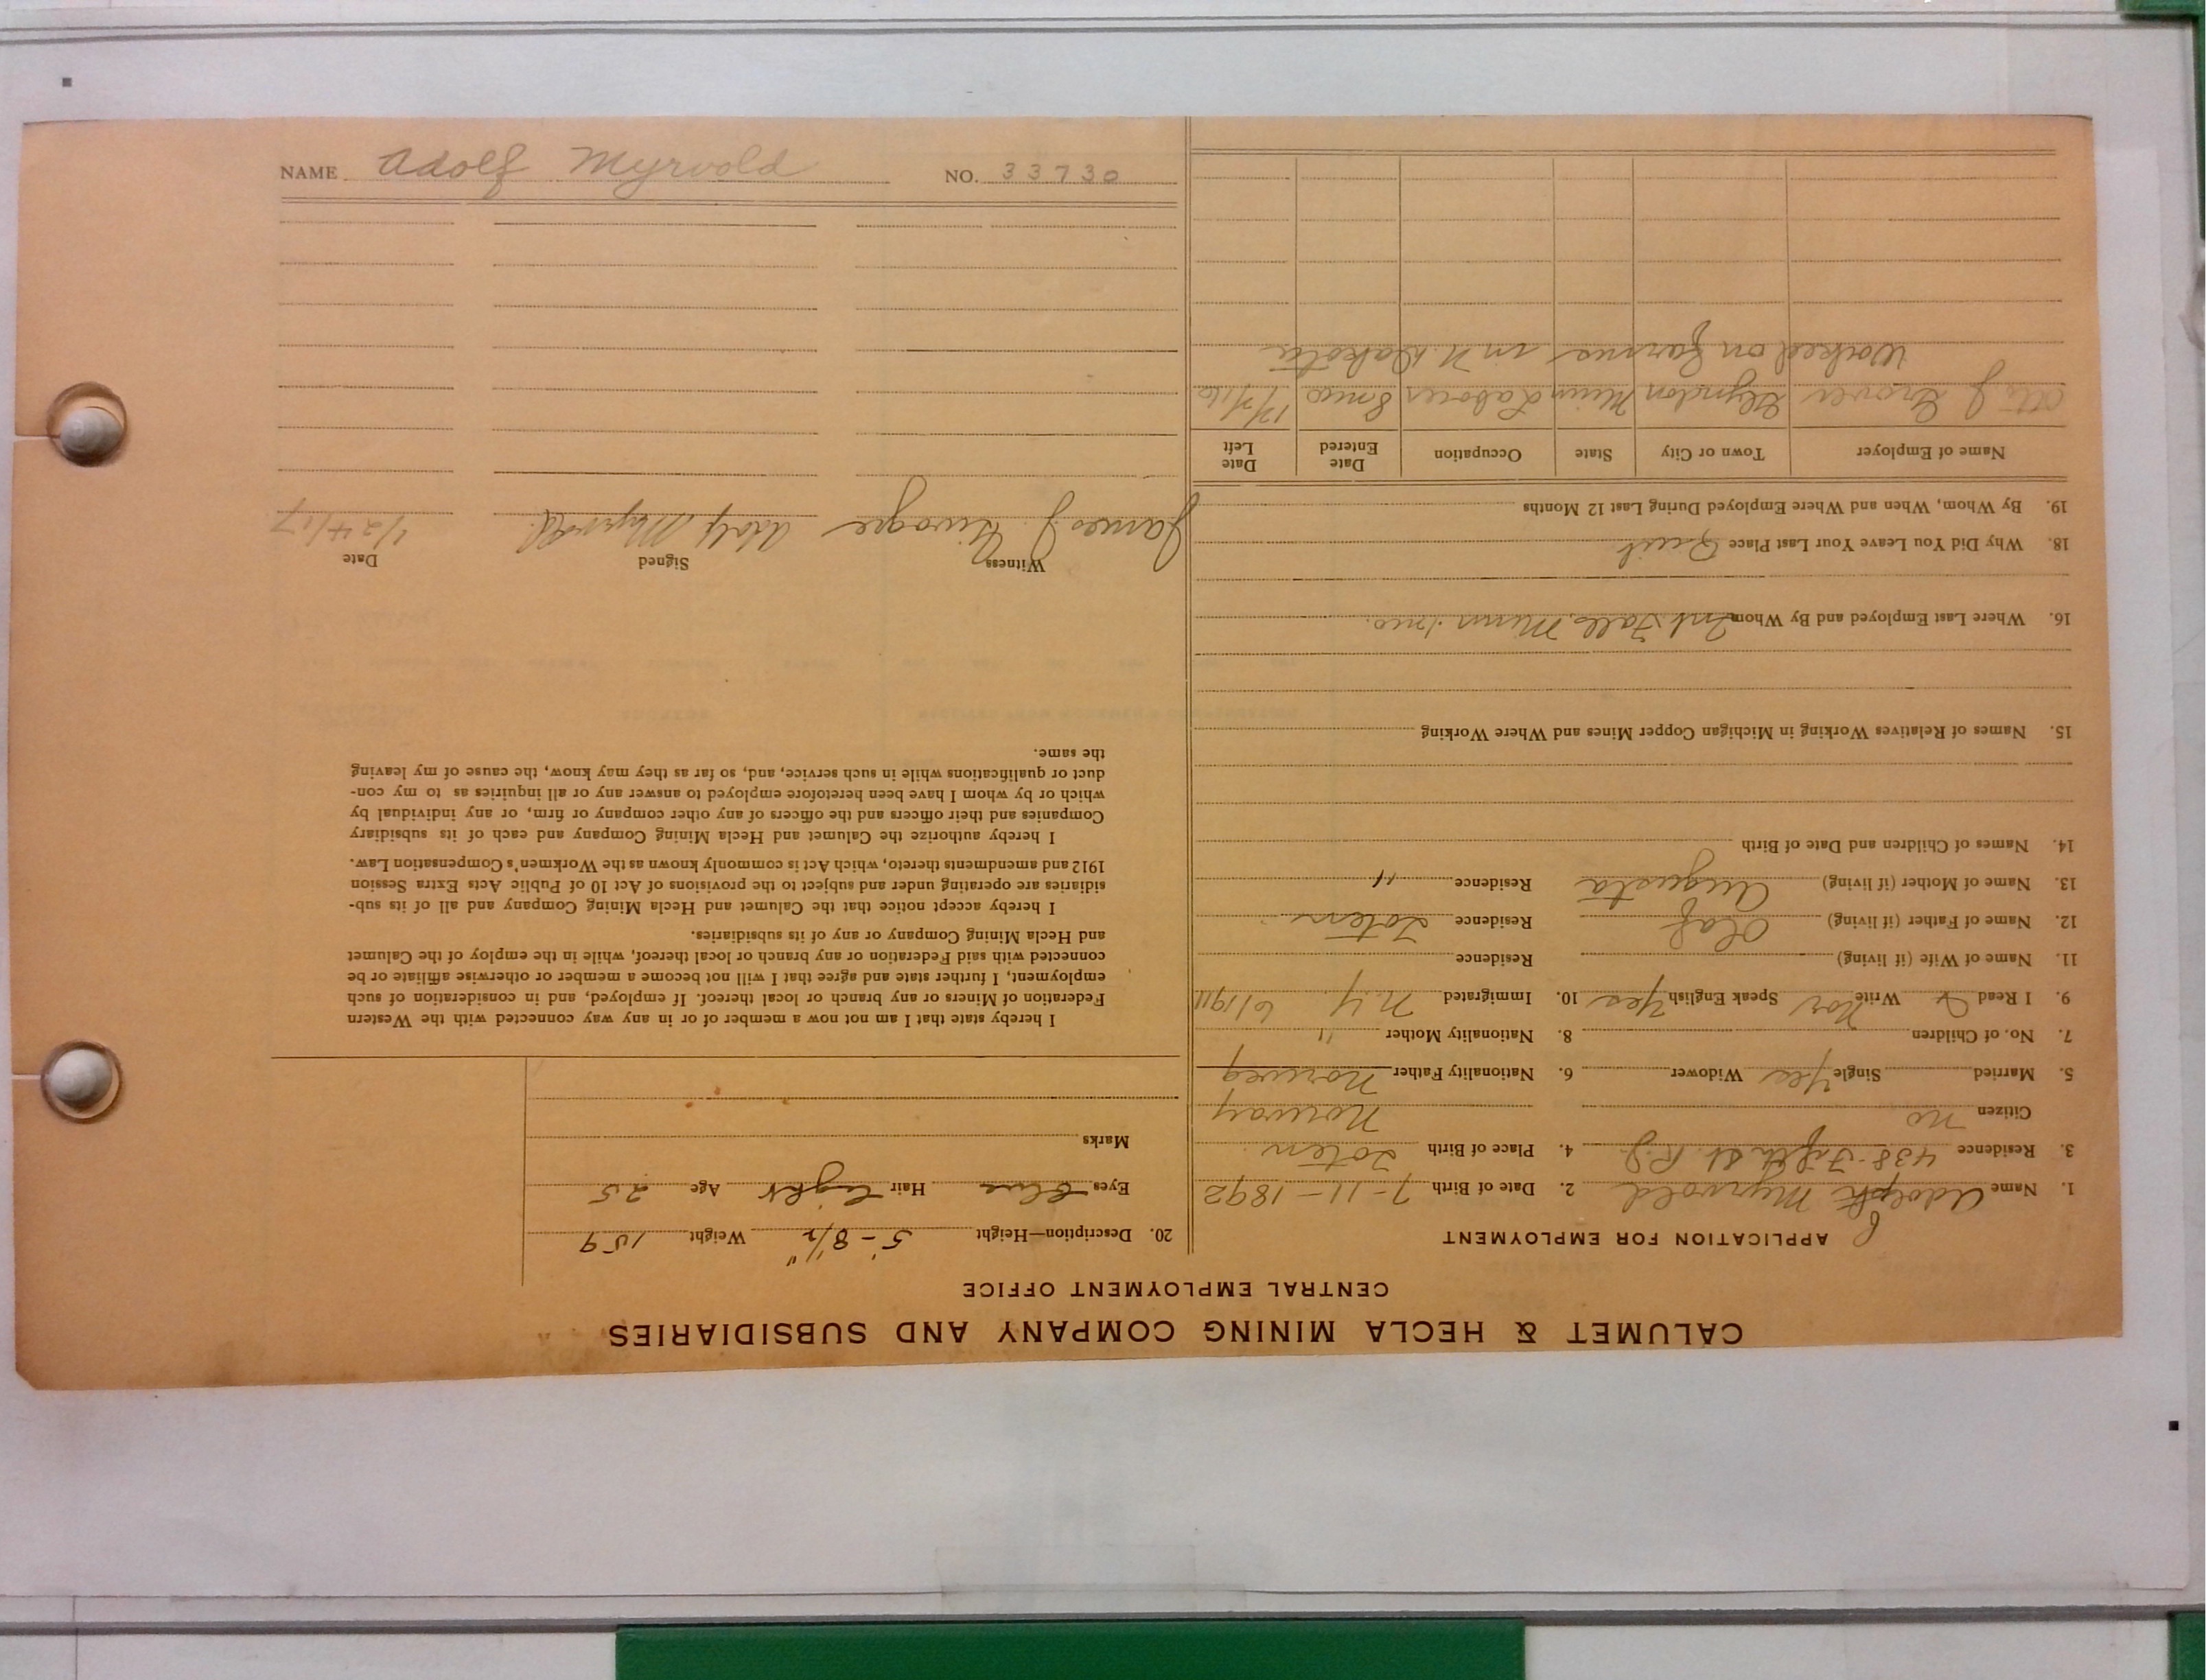 CALUMET & HECLA MINING COMPANY AND SUBSIDIARIES
CENTRAL EMPLOYMENT OFFICE
APPLICATION FOR EMPLOYMENT
1. Name Adolf Myrvold 2. Date of Birth 7-11-1892
3. Residence 438-Fifth St. R.J. 4. Place of Birth Toten
Citizen no Norway
5. Married Single Yes Widower 6. Nationality Father Norweg
7. No. of Children 8. Nationality Mother "
9. I Read & Write Nor Speak English Yes 10. Immigrated N.Y. 6/1911
11. Name of Wife (if living) Residence
12. Name of Father (if living) Olaf Residence Toten
13. Name of Mother (if living) Augusta Residence "
14. Names of Children and Date of Birth
15. Names of Relatives Working in Michigan Copper Mines and Where Working
16. Where Last Employed and By Whom Int. Falls, Minn 1 mo.
18. Why Did You Leave Your Last Place Quit
19. By Whom, When and Where Employed During Last 12 Months
Name of Employer Town or City State Occupation Date Entered Date Left
J. Grover Glyndon Minn Laborer 8 mco 12/1/16
Worked on farms in N. Dakota
20. Description—Height 5'-8 1/2" Weight 159
Eyes Blue Hair Light Age 25
Marks
I hereby state that I am not now a member of or in any way connected with the Western
Federation of Miners or any branch or local thereof. If employed, and in consideration of such
employment, I further state and agree that I will not become a member or otherwise affiliate or be
connected with said Federation or any branch or local thereof, while in the employ of the Calumet
and Hecla Mining Company or any of its subsidiaries.
I hereby accept notice that the Calumet and Hecla Mining Company and all of its sub-
sidiaries are operating under and subject to the provisions of Act 10 of Public Acts Extra Session
1912 and amendments thereto, which Act is commonly known as the Workmen's Compensation Law.
I hereby authorize the Calumet and Hecla Mining Company and each of its subsidiary
Companies and their officers and the officers of any other company or firm, or any individual by
which or by whom I have been heretofore employed to answer any or all inquiries as to my con-
duct or qualifications while in such service, and, so far as they may know, the cause of my leaving
the same.
Witness Signed Date
James J. Adolf Myrvold. 1/24/17
NAME Adolf Myrvold NO. 33730